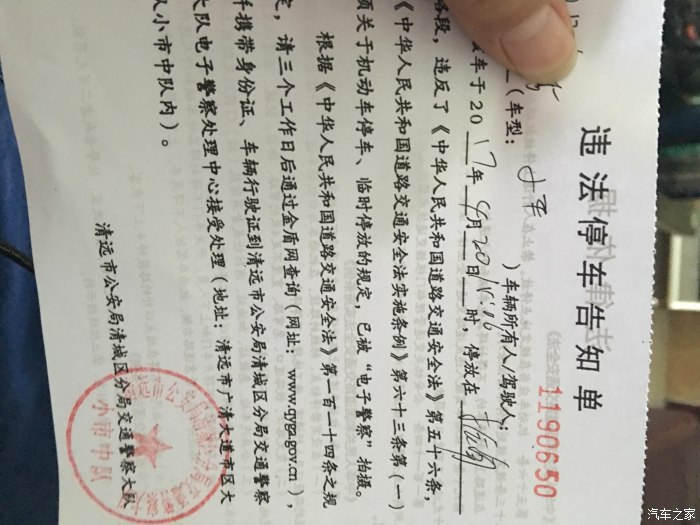 违法停车告知单
1190650
（车型：小车）车辆所有人/驾驶人：
车于2017年4月20日15:16时，停放在
路段，违反了《中华人民共和国道路交通安全法》第五十六条，
《中华人民共和国道路交通安全法实施条例》第六十三条第（一）
项关于机动车停车、临时停放的规定，已被“电子警察”拍摄。
根据《中华人民共和国道路交通安全法》第一百一十四条之规
定，请三个工作日后通过金盾网查询（网址：www.qyga.gov.cn），
携带身份证、车辆行驶证到清远市公安局清城区分局交通警察
大队电子警察处理中心接受处理（地址：清远市广清大道市区大
队小市中队内）。
清远市公安局清城区分局交通警察大队
小市中队
汽车之家